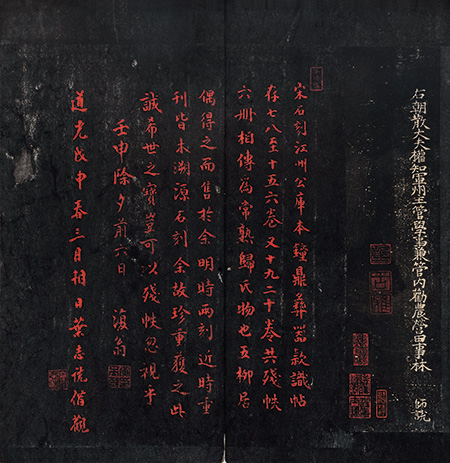 右朝散大夫權知軍州主管學事兼管内勸農營田事林 師說
宋石刻江州公庫本鐘鼎彝器款識帖
存七八至十五六卷又十九二十卷共殘帙
六冊相傳為常熟歸氏物也五柳居
偶得之而售於余明時兩刻近時重
刊皆未溯源石刻余故珍重獲之此
誠希世之寶豈可以殘帙忽視乎
壬申除夕前六日 復翁
道光戊申春三月朔日葉志詵借觀